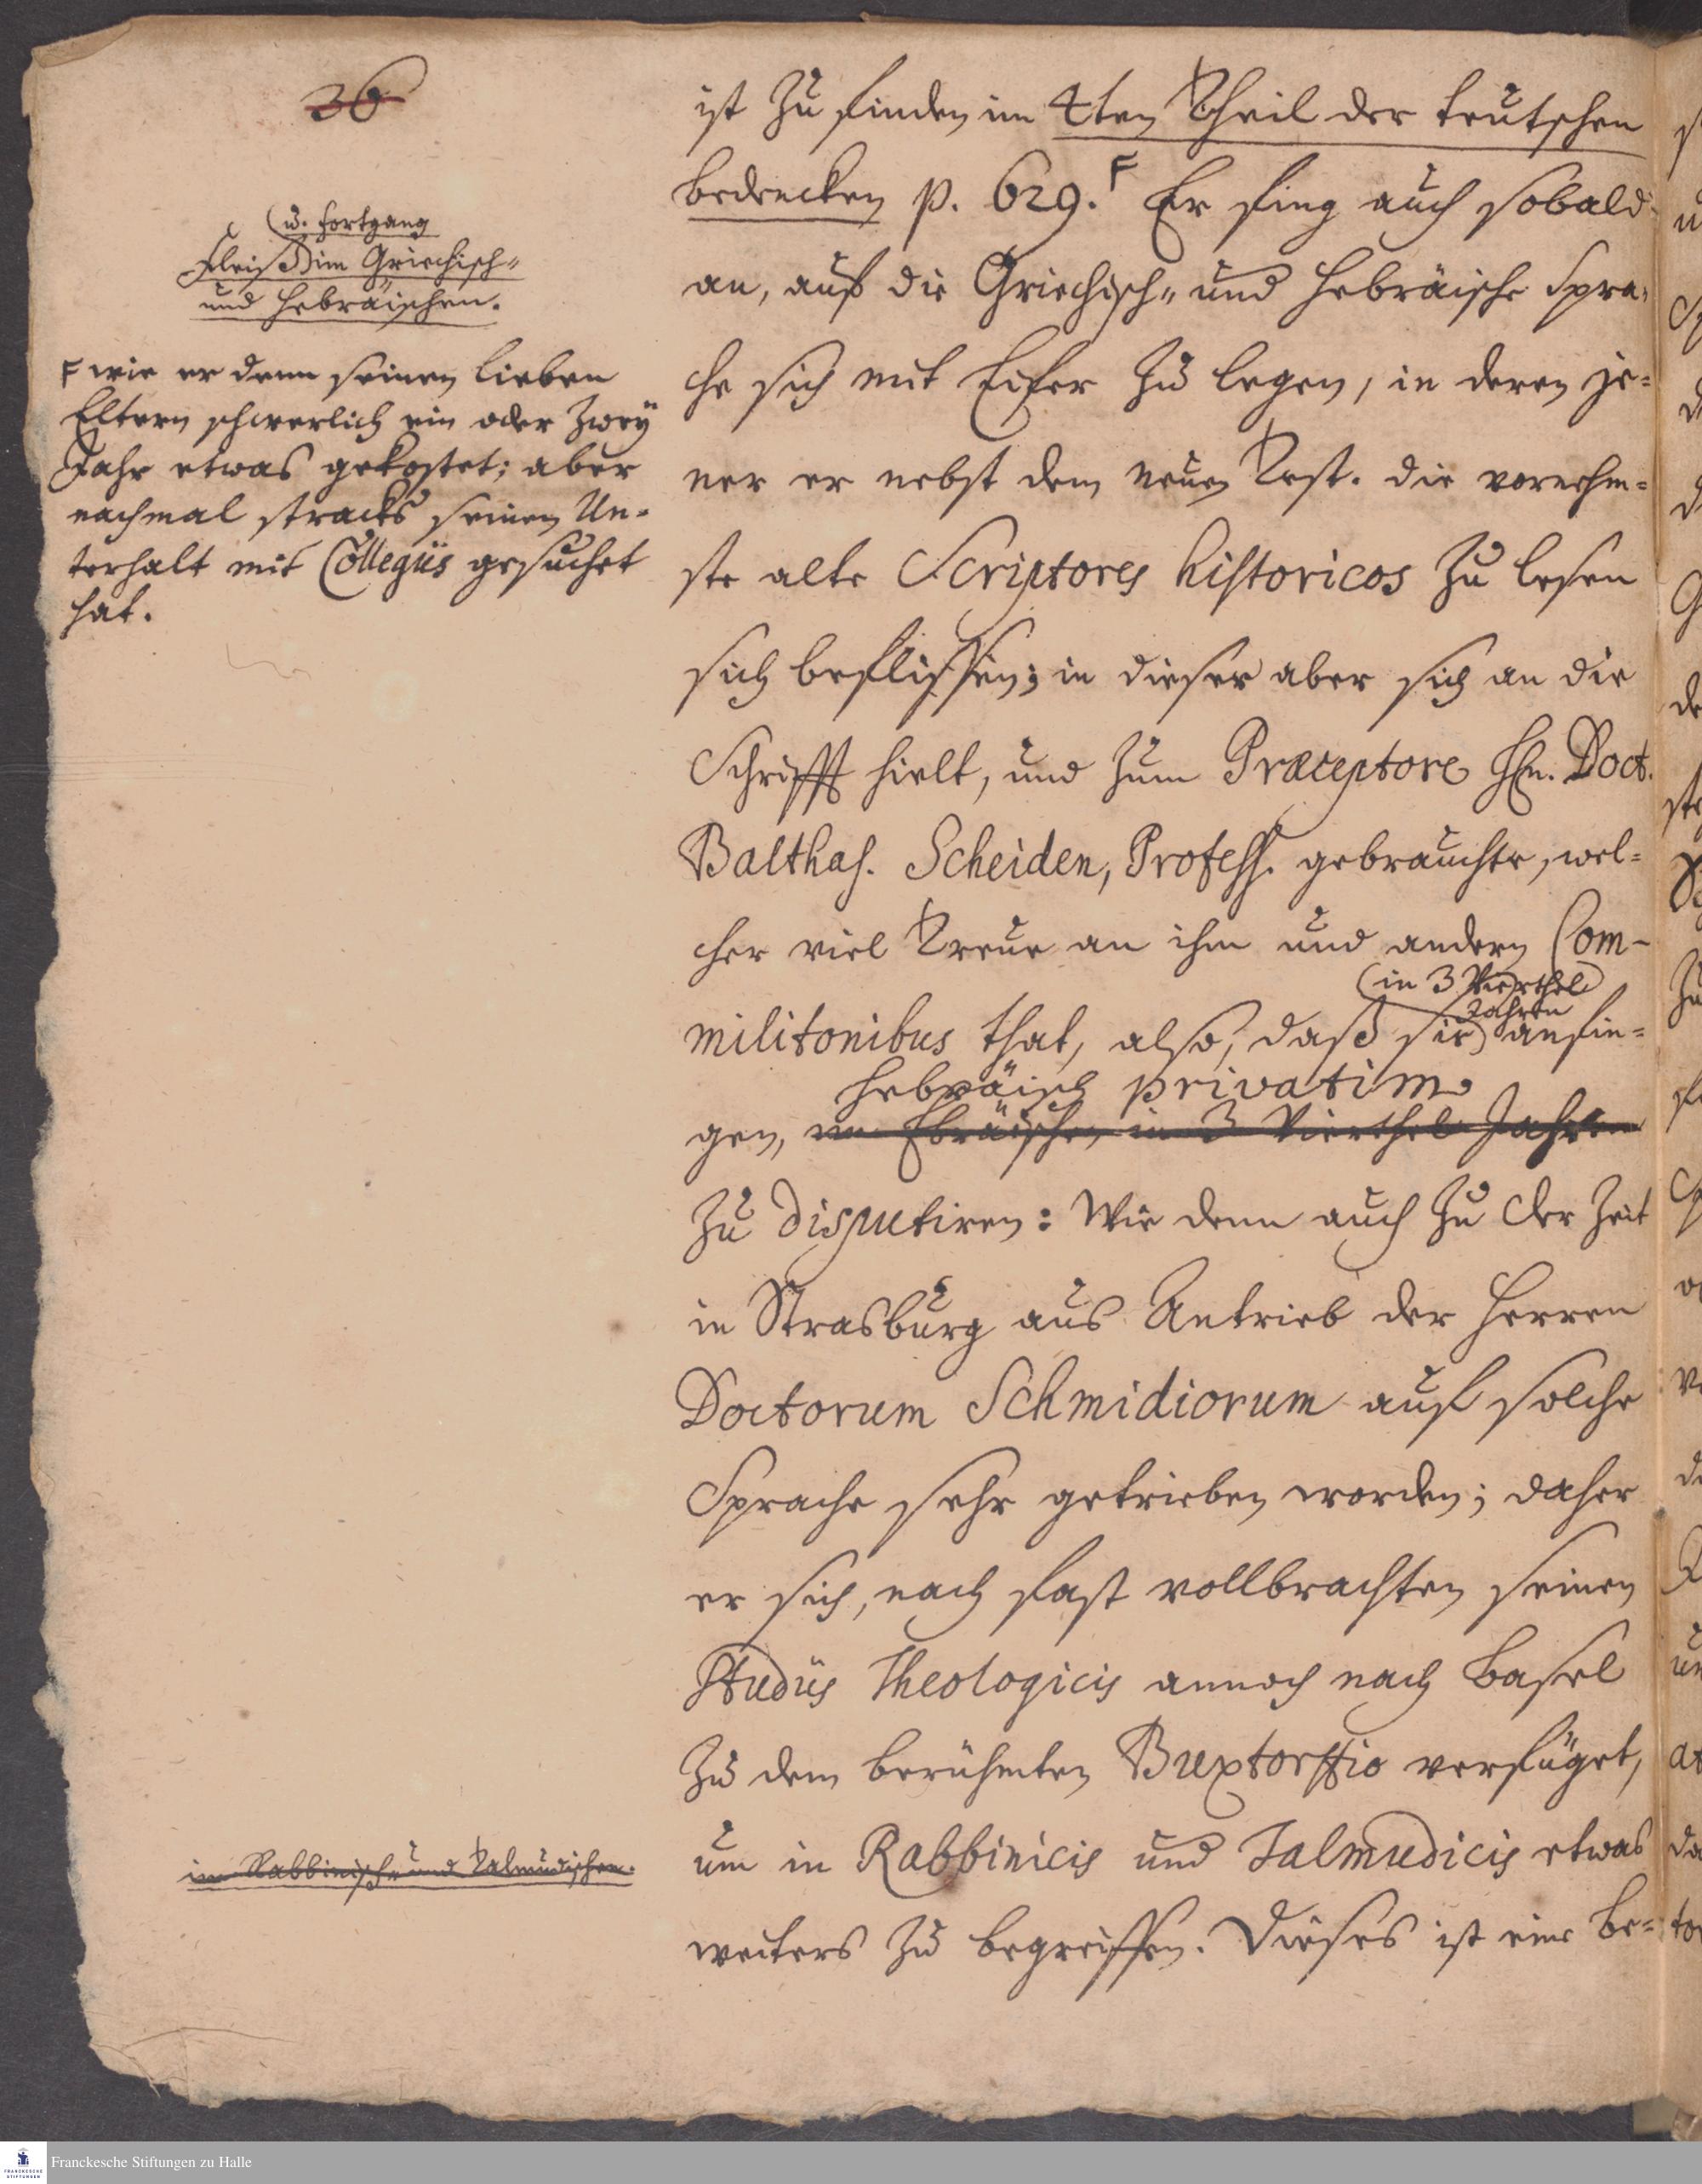 36
ist zu finden im 4ten Theil der teutschen
bedencken p. 629. F Er fing auch sobald
an, auf die Griechisch- und Hebräische Spra-
che sich mit Eifer zu legen, in deren je-
ner er nebst dem neuen Test. die vornehm-
ste alte Scriptores historicos zu lesen
sich beflissen; in dieser aber sich an die
Schrifft hielt, und zum Præceptore Hn. Doct.
Balthas. Scheiden, Profess. gebrauchte, wel-
cher viel Treue an ihm und andern Com-
(in 3 Vierthel
Jahren
militonibus that, also, daß sie) anfin-
hebräisch privatim
gen, im Ebräischen in 3 Vierthel Jahren
zu disputiren: Wie denn auch zu der Zeit
in Strasburg aus Antrieb der Herren
Doctorum Schmidiorum auf solche
Sprache sehr getrieben worden; daher
er sich, nach fast vollbrachten seinen
Studiis Theologicis annoch nach Basel
zu dem berühmten Buxtorffio verfüget,
um in Rabbinicis und Talmudicis etwas
weiters zu begreiffen. Dieses ist eine be-
(u. fortgang
Fleiß) im Griechisch-
und Hebräischen.
F wie er denn seinen lieben
Eltern schwerlich ein oder zwey
Jahr etwas gekostet; aber
nachmal stracks seinen Un-
terhalt mit Collegiis gesuchet
hat.
im Rabbinisch- und Talmudischen.
Franckesche Stiftungen zu Halle